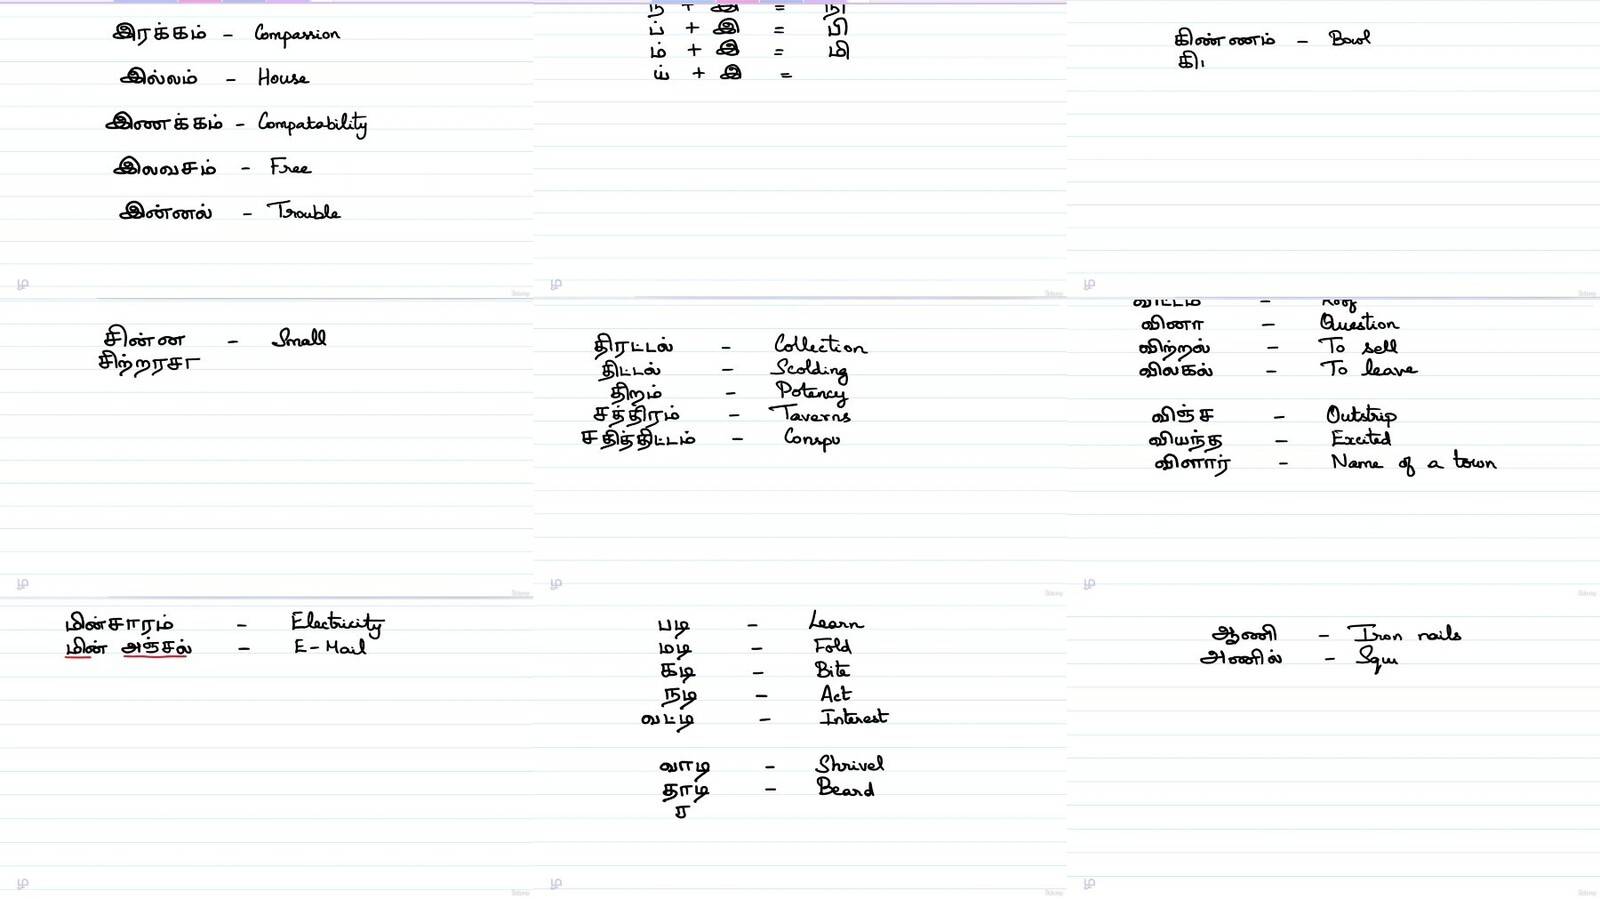 இரக்கம் - Compassion
இல்லம் - House
இணக்கம் - Compatability
இலவசம் - Free
இன்னல் - Trouble
ந் + இ = நி
ப் + இ = பி
ம் + இ = மி
ய் + இ =
கிண்ணம் - Bowl
கி
சின்ன - Small
சிற்றரசா
திரட்டல் - Collection
திட்டல் - Scolding
திறம் - Potency
சத்திரம் - Taverns
சதித்திட்டம் - Conspu
விட்டம் - Roof
வினா - Question
விற்றல் - To sell
விலகல் - To leave
விஞ்ச - Outstrip
வியந்த - Excited
விளார் - Name of a town
மின்சாரம் - Electricity
மின் அஞ்சல் - E-Mail
படி - Learn
மடி - Fold
கடி - Bite
நடி - Act
வட்டி - Interest
வாடி - Shrivel
தாடி - Beard
ர
ஆணி - Iron nails
அணில் - Squ
ழ
Udemy
ழ
Udemy
ழ
Udemy
ழ
Udemy
ழ
Udemy
ழ
Udemy
ழ
Udemy
ழ
Udemy
ழ
Udemy